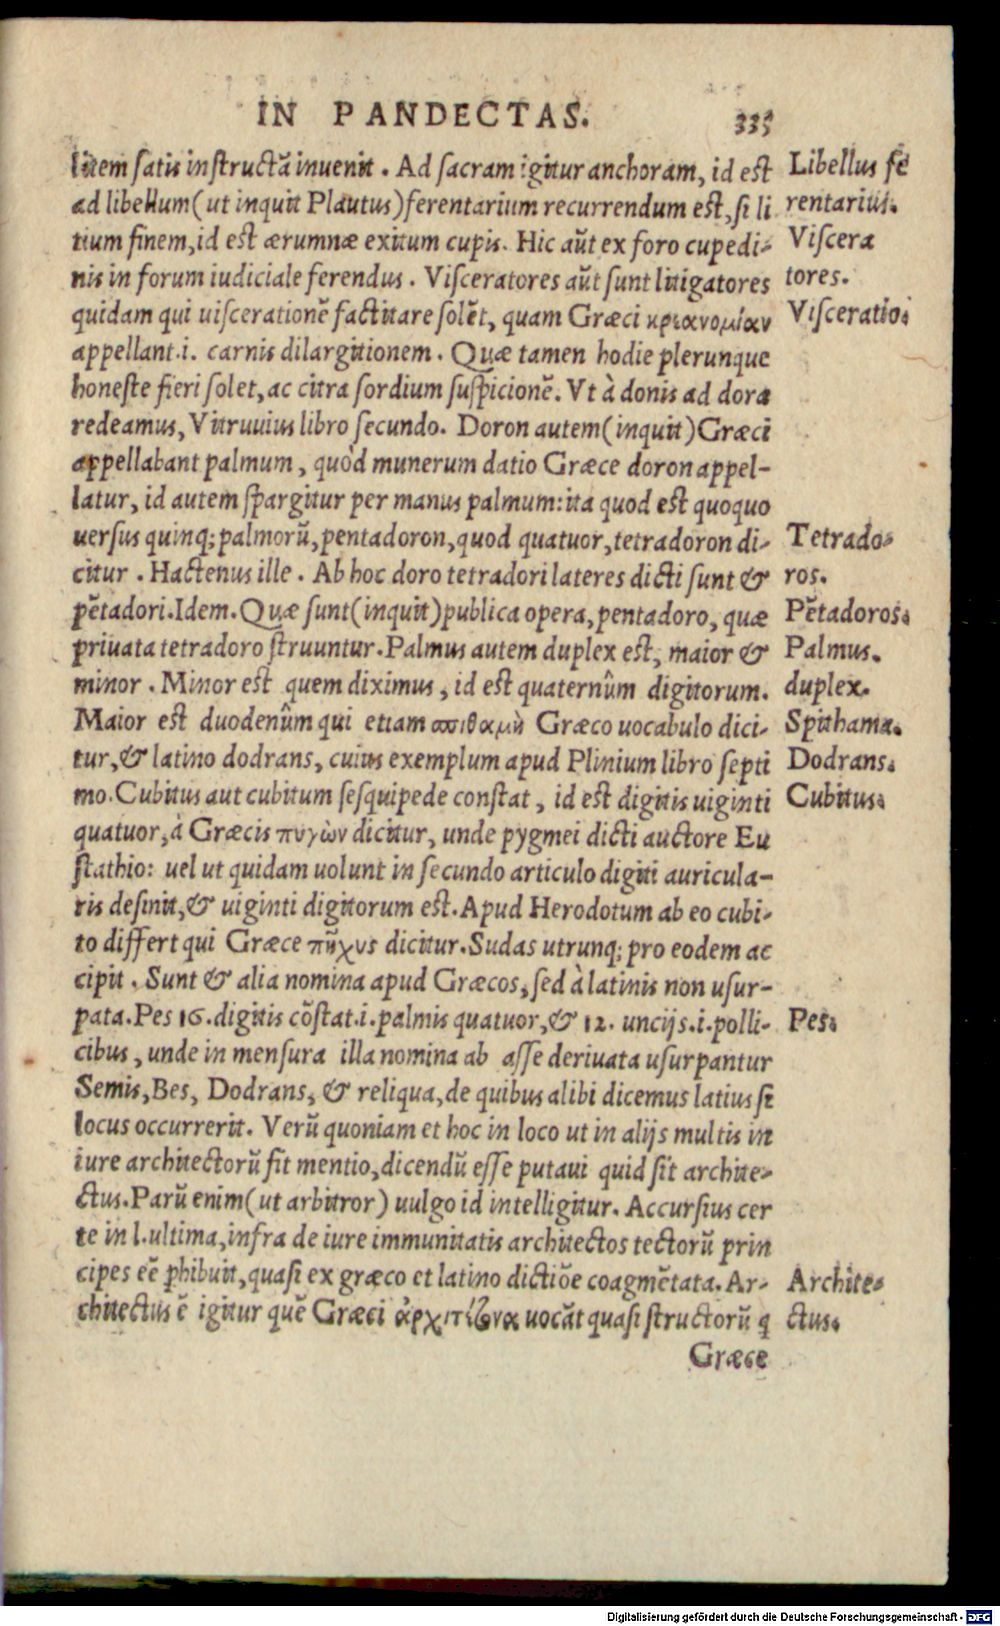 IN PANDECTAS. 335
litem satis instructã invenit . Ad sacram igitur anchoram, id est
ad libellum (ut inquit Plautus) ferentarium recurrendum est, si li
tium finem, id est ærumnæ exitum cupis. Hic aũt ex foro cupedi-
nis in forum iudiciale ferendus . Visceratores aũt sunt litigatores
quidam qui uiscerationẽ factitare solẽt, quam Græci κριανομίαν
appellant .i. carnis dilargitionem . Quæ tamen hodie plerunque
honeste fieri solet, ac citra sordium suspicionẽ. Vt à donis ad dora
redeamus, Vitruuius libro secundo. Doron autem (inquit) Græci
appellabant palmum , quòd munerum datio Græce doron appel-
latur, id autem spargitur per manus palmum: ita quod est quoquo
uersus quinq; palmorũ, pentadoron, quod quatuor, tetradoron di-
citur . Hactenus ille . Ab hoc doro tetradori lateres dicti sunt &
pẽtadori. Idem. Quæ sunt (inquit) publica opera, pentadoro, quæ
priuata tetradoro struuntur. Palmus autem duplex est, maior &
minor . Minor est quem diximus , id est quaternûm digitorum.
Maior est duodenûm qui etiam σπιθαμὴ Græco uocabulo dici-
tur, & latino dodrans, cuius exemplum apud Plinium libro septi
mo. Cubitus aut cubitum sesquipede constat , id est digitis uiginti
quatuor, à Græcis πυγὼν dicitur, unde pygmei dicti auctore Eu
stathio: uel ut quidam uolunt in secundo articulo digiti auricula-
ris desinit, & uiginti digitorum est. Apud Herodotum ab eo cubi-
to differt qui Græce πῆχυς dicitur. Sudas utrunq; pro eodem ac
cipit . Sunt & alia nomina apud Græcos, sed à latinis non usur-
pata. Pes 16. digitis cõstat .i. palmis quatuor, & 12. uncijs .i. polli-
cibus , unde in mensura illa nomina ab asse deriuata usurpantur
Semis, Bes, Dodrans, & reliqua, de quibus alibi dicemus latius si
locus occurrerit. Verũ quoniam et hoc in loco ut in alijs multis in
iure architectorũ fit mentio, dicendũ esse putaui quid sit archite-
ctus. Parũ enim (ut arbitror) uulgo id intelligitur. Accursius cer
te in l. ultima, infra de iure immunitatis architectos tectorũ prin
cipes eẽ phibuit, quasi ex græco et latino dictiõe coagmẽtata. Ar-
chitectus ẽ igitur quẽ Græci ἀρχιτέκτονα uocãt quasi structorũ q
Græce
Libellus fe
rentarius.
Viscera
tores.
Visceratio.
Tetrado-
ros.
Pẽtadoros.
Palmus.
duplex.
Spithama.
Dodrans.
Cubitus.
Pes.
Archite-
ctus.
Digitalisierung gefördert durch die Deutsche Forschungsgemeinschaft - DFG